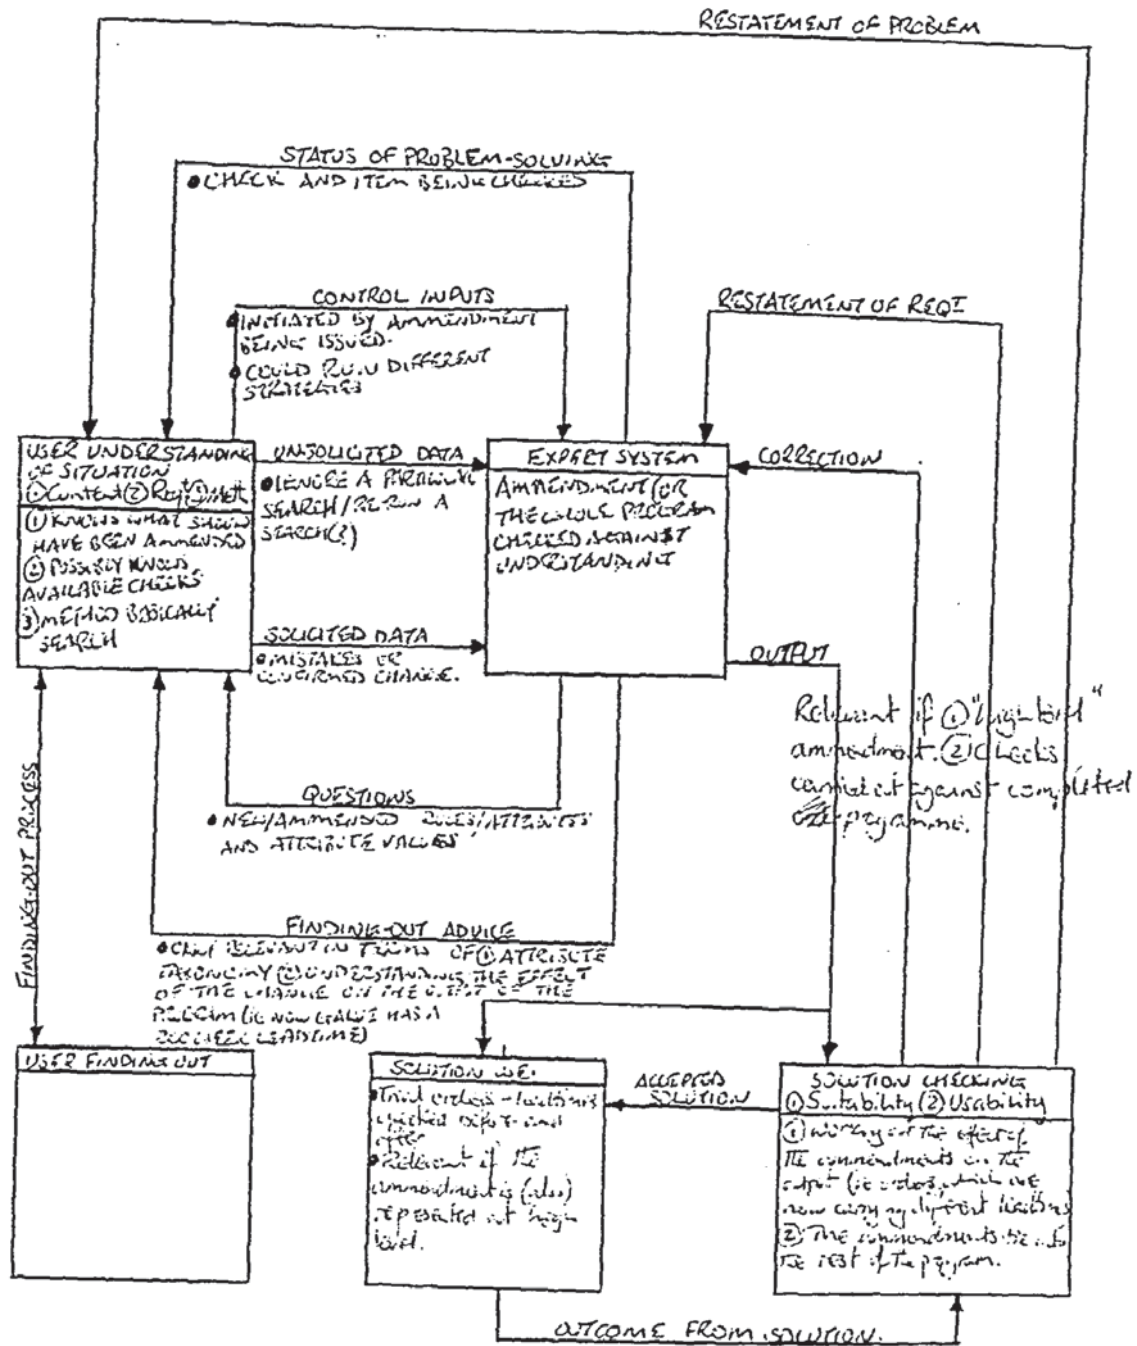 RESTATEMENT OF PROBLEM
STATUS OF PROBLEM-SOLVING
• CHECK AND ITEM BEING CHECKED
CONTROL INPUTS
• INITIATED BY AMMENDMENT
BEING ISSUED.
• COULD RUN DIFFERENT
STRATEGIES
RESTATEMENT OF REQT
USER UNDERSTANDING
OF SITUATION
① Content ② Reqt ③ Meth
① KNOWS WHAT SHOULD
HAVE BEEN AMMENDED
② POSSIBLY KNOWS
AVAILABLE CHECKS
③ METHOD BASICALLY
SEARCH
UNSOLICITED DATA
• IGNORE A PARTICULAR
SEARCH/RE-RUN A
SEARCH(?)
SOLICITED DATA
• MISTAKES OR
CONFIRMED CHANGE.
EXPERT SYSTEM
AMMENDMENT/OR
THE WHOLE PROGRAM
CHECKED AGAINST
UNDERSTANDING
CORRECTION
OUTPUT
Relevant if ① "high level"
ammendment. ② Checks
carried out against completed
programme.
QUESTIONS
• NEW/AMMENDED RULES/ATTRIBUTES
AND ATTRIBUTE VALUES
FINDING-OUT PROCESS
FINDING-OUT ADVICE
• ONLY RELEVANT IN TERMS OF ① ATTRIBUTE
TAXONOMY ② UNDERSTANDING THE EFFECT
OF THE CHANGE ON THE OUTPUT OF THE
PROGRAM (IE NOW VALVE HAS A
LEADTIME)
USER FINDING OUT
SOLUTION USE:
• Trial orders - leadtimes
checked before and
after
• Relevant if the
ammendment is (also)
represented at high
level.
ACCEPTED
SOLUTION
SOLUTION CHECKING
① Suitability ② Usability
① Working out the effect of
the ammendments on the
output (ie orders which are
now carrying different leadtimes
② The ammendments tie into
the rest of the program.
OUTCOME FROM SOLUTION.